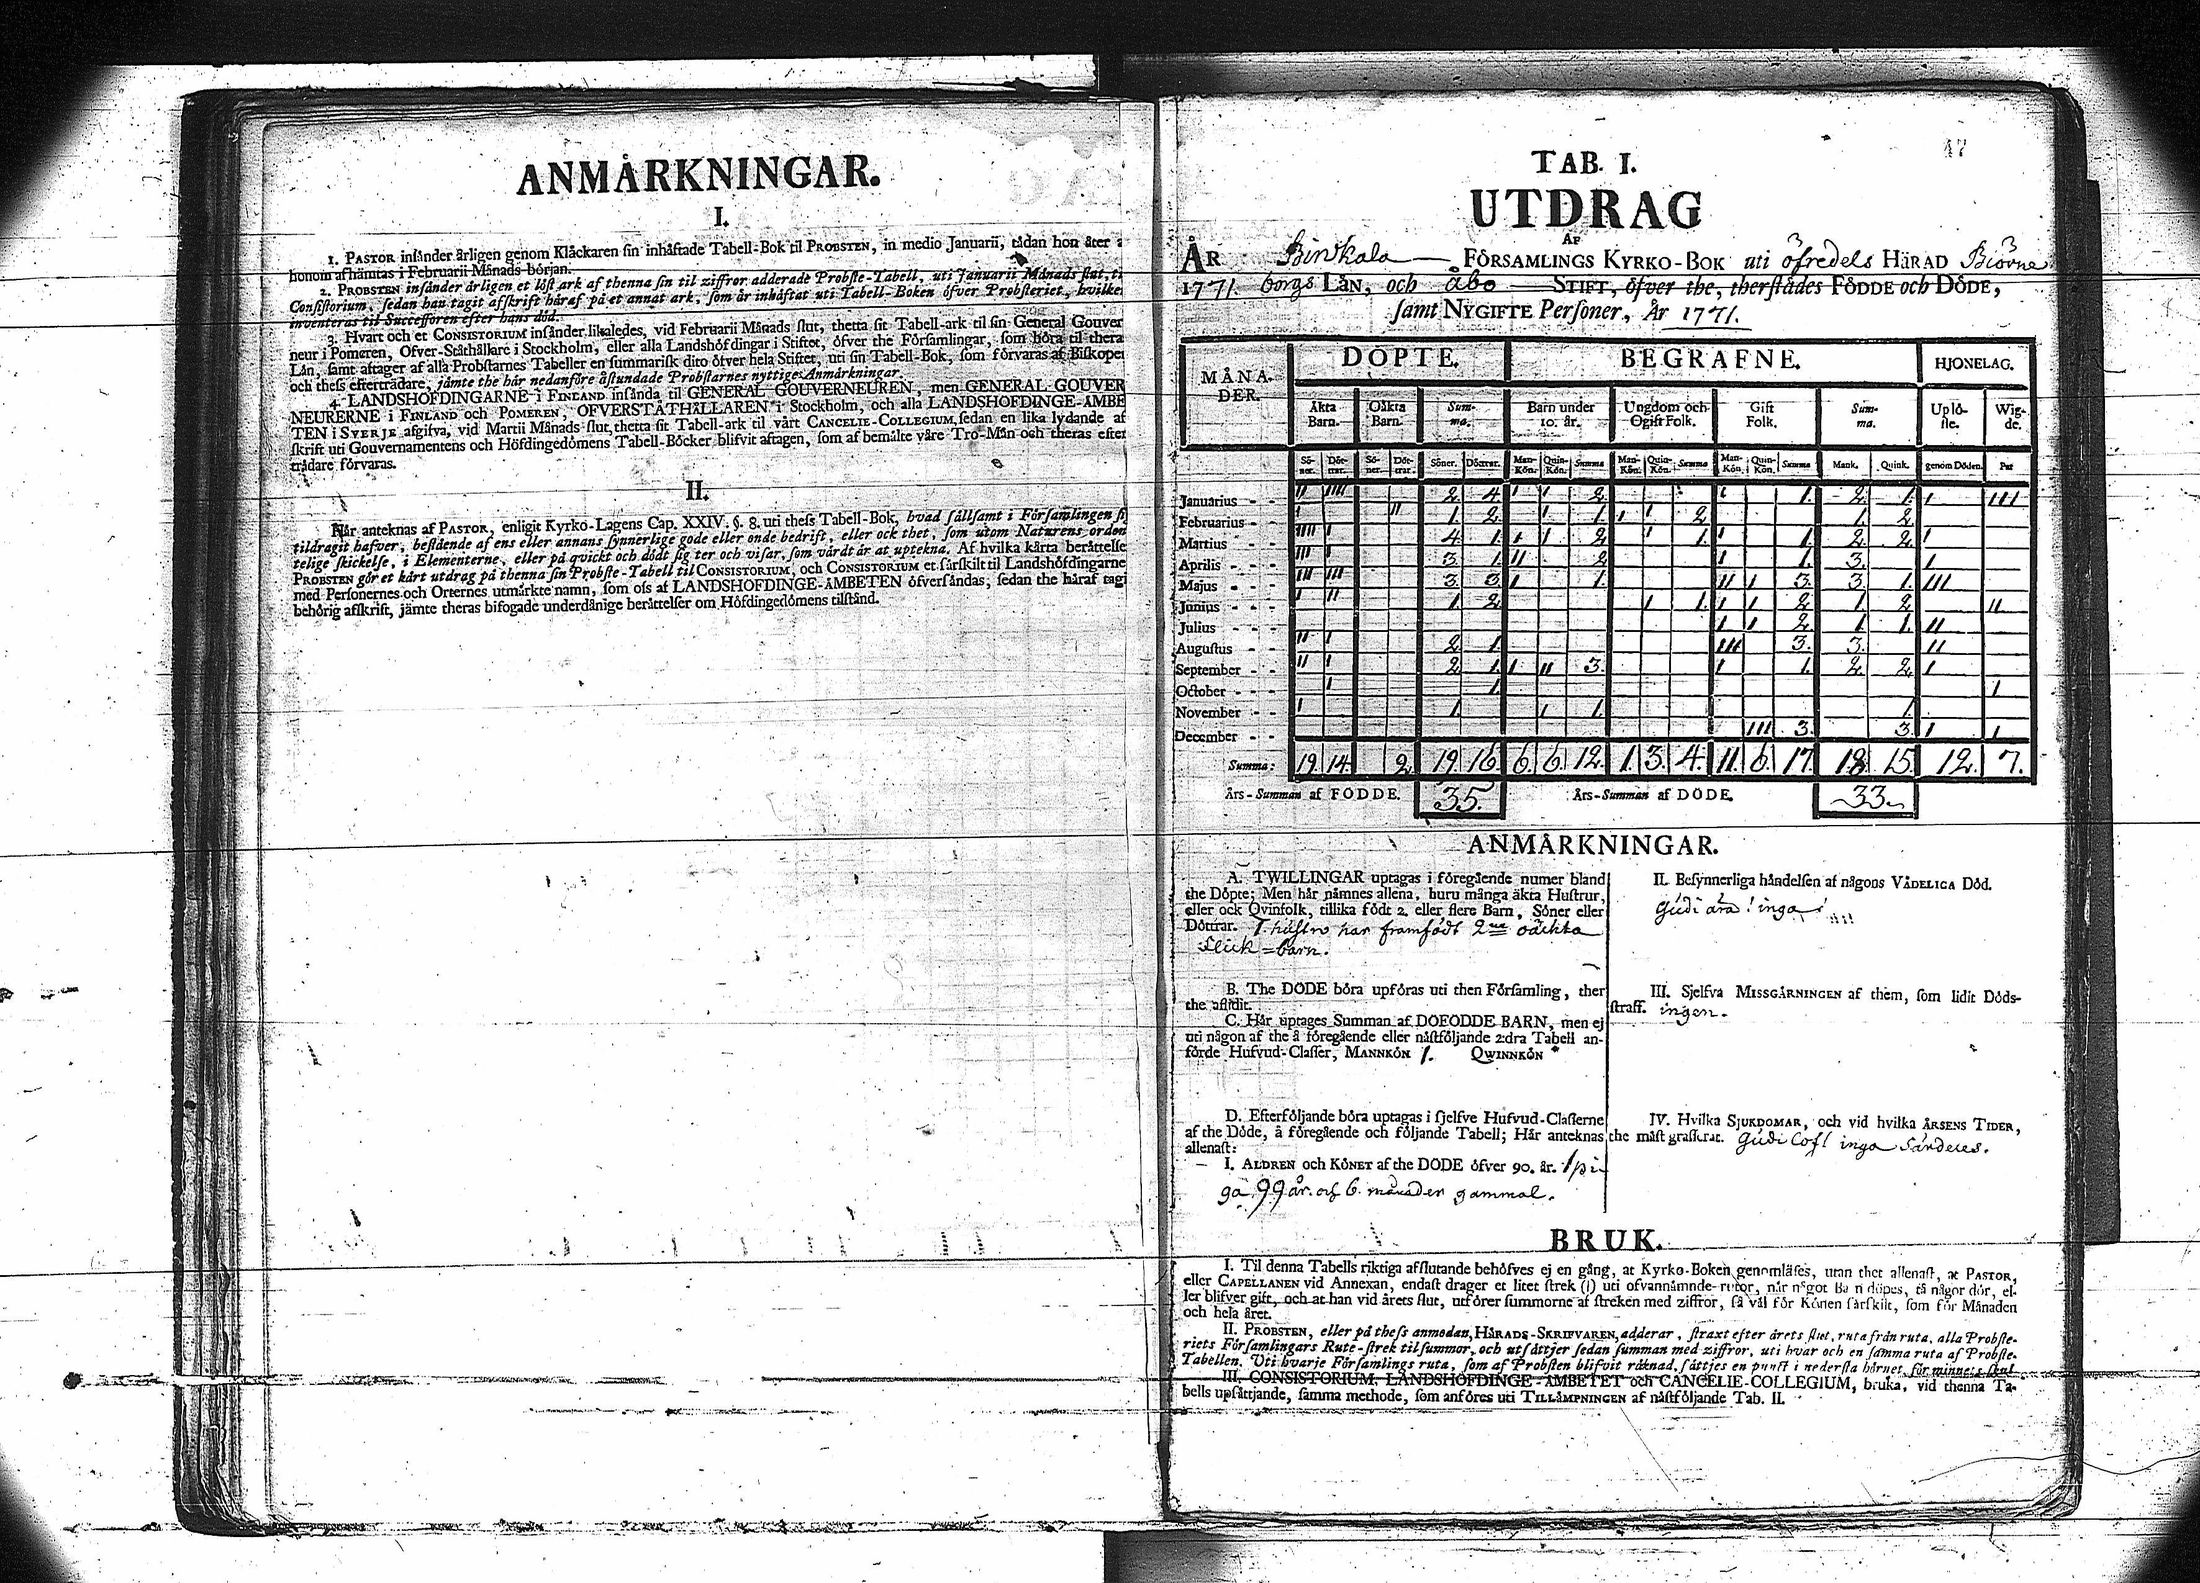 ANMÅRKNINGAR.
I.
1. PASTOR insånder årligen genom Klåckaren sin inhåftade Tabell-Bok til PROBSTEN, in medio Januarii, tådan hon åter a
honom afhåmtas i Februarii Månads början.
2. PROBSTEN insånder årligen et löst ark af thenna sin til ziffror adderade Probste-Tabell, uti Januarii Månads slut, ti
Consistorium, sedan han tagit afskrift håraf på et annat ark, som år inhåftat uti Tabell-Boken öfver Probsteriet, hvilke
inventeras til Successoren efter hans död.
3. Hvart och et CONSISTORIUM insånder likaledes, vid Februarii Månads slut, thetta sit Tabell-ark til sin General Gouver
neur i Pomeren, Öfver-Ståthållare i Stockholm, eller alla Landshöfdingar i Stiftet, öfver the Församlingar, som höra til thera
Lån, samt aftager af alla Probstarnes Tabeller en summarisk dito öfver hela Stiftet, uti sin Tabell-Bok, som förvaras af Biskopen
och thess eftertrådare, jämte the hår nedanföre åstundade Probstarnes nyttiges Anmårkningar.
4. LANDSHÖFDINGARNE i FINLAND insånda til GENERAL GOUVERNEUREN, men GENERAL GOUVER
NEURERNE i FINLAND och POMEREN, ÖFVERSTÅTHÅLLAREN i Stockholm, och alla LANDSHÖFDINGE-ÅMBE
TEN i SVERJE afgifva, vid Martii Månads slut, thetta sit Tabell-ark til vårt CANCELIE-COLLEGIUM, sedan en lika lydande af
skrift uti Gouvernamentens och Höfdingedömens Tabell-Böcker blifvit aftagen, som af bemålte våre Tro-Mån och theras efter
trådare förvaras.
II.
Hår anteknas af PASTOR, enligit Kyrko-Lagens Cap. XXIV. §. 8. uti thess Tabell-Bok, hvad sållsamt i Församlingen si
tildragit hafver, bestående af ens eller annans synnerlige gode eller onde bedrift, eller ock thet, som utom Naturens orden
telige skickelse, i Elementerne, eller på qvickt och dödt sig ter och visar, som vårdt år at uptekna. Af hvilka kårta beråttelse
PROBSTEN gör et kårt utdrag på thenna sin Probste-Tabell til CONSISTORIUM, och CONSISTORIUM et sårskilt til Landshöfdingarne
med Personernes och Orternes utmårkte namn, som oss af LANDSHÖFDINGE-ÅMBETEN öfversåndas, sedan the håraf tagi
behörig afskrift, jämte theras bifogade underdånige beråttelser om Höfdingedömens tilstånd.
47
TAB. I.
UTDRAG
AF
ÅR Birkala FÖRSAMLINGS KYRKO-BOK uti öfredels HÄRAD Biörne
1771. borgs LÅN, och åbo STIFT, öfver the, therstådes FÖDDE och DÖDE,
samt NYGIFTE Personer, År 1771.
MÅNA-DER. DÖPTE. BEGRAFNE. HJONELAG.
Äkta Barn. Oåkta Barn. Summa. Barn under 10. år. Ungdom och Ogift Folk. Gift Folk. Summa. Uplö-ste. Wig-de.
Sö-ner. Döt-trar. Sö-ner. Döt-trar. Söner. Döttrar. Man-Kön. Quin-Kön. Summa Man-Kön. Quin-Kön. Summa Man-Kön. Quin-Kön. Summa Mank. Quink. genom Döden. Par
Januarius - - II IIII 2. 4. I I 2. I 1. 2. 1. I III
Februarius - - I II 1. 2. I 1. I I 2. 1. 2.
Martius - - IIII I 4. 1. I I 2. I 1. I 1. 2. 2. I
Aprilis - - III I 3. 1. II 2. I 1. 3. I
Majus - - III III 3. 3. I 1. II I 3. 3. 1. III
Junius - - I II 1. 2. I 1. I I 2. 1. 2. II
Julius - - I I 2. 1. 1. II
Augustus - - II I 2. 1. III 3. 3. II
September - - II I 2. 1. I II 3. I 1. 2. 2. I
October - - - I 1. I
November - - I 1. I 1. 1.
December - - III 3. 3. I I
Summa: 19. 14. 2. 19. 16. 6. 6. 12. 1. 3. 4. 11. 6. 17. 18. 15. 12. 7.
Års-Summan af FÖDDE. 35. Års-Summan af DÖDE. 33.
ANMÅRKNINGAR.
A. TWILLINGAR uptagas i föregående numer bland
the Döpte; Men hår nåmnes allena, huru många äkta Hustrur,
eller ock Qvinfolk, tillika födt 2. eller flere Barn, Söner eller
Döttrar. 1. hustro har framfödt 2ne oäckta
flick=barn.
B. The DÖDE böra upföras uti then Församling, ther
the aflidit.
C. Hår uptages Summan af DÖFÖDDE BARN, men ej
uti någon af the å föregående eller nåstföljande 2:dra Tabell an-
förde Hufvud-Classer, MANNKÖN 1. QWINNKÖN
D. Efterföljande böra uptagas i sjelfve Hufvud-Classerne
af the Döde, å föregående och följande Tabell; Hår anteknas
allenast:
I. ALDREN och KÖNET af the DÖDE öfver 90. år. 1 pi-
ga 99 år. och 6. månader gammal.
II. Besynnerliga håndelsen af någons VÅDELIGA Död.
Gudi ära! inga
III. Sjelfva MISSGÅRNINGEN af them, som lidit Döds-
straff. ingen.
IV. Hvilka SJUKDOMAR, och vid hvilka ÅRSENS TIDER,
the måst grasserat. Gudi lof! inga särdeles.
BRUK.
I. Til denna Tabells riktiga afslutande behöfves ej en gång, at Kyrko-Boken genomläses, utan thet allenast, at PASTOR,
eller CAPELLANEN vid Annexan, endast drager et litet strek (I) uti ofvannåmnde rutor, når något Barn döpes, få någor dör, el-
ler blifver gift, och at han vid årets slut, utförer summorne af streken med ziffror, så vål för Könen sårskilt, som för Månaden
och hela året.
II. PROBSTEN, eller på thess anmodan, HÅRADS-SKRIFVAREN, adderar, straxt efter årets slut, ruta från ruta, alla Probste-
riets Församlingars Rute-strek til summor, och utsåttjer sedan summan med ziffror, uti hvar och en samma ruta af Probste-
Tabellen. Uti hvarje Församlings ruta, som af Probsten blifvit råknad, såttjes en punct i nedersta hörnet, för minnets skul.
III. CONSISTORIUM, LANDSHÖFDINGE-ÅMBETET och CANCELIE-COLLEGIUM, bruka, vid thenna Ta-
bells upsåttjande, samma methode, som anföres uti TILLÅMPNINGEN af nåstföljande Tab. II.